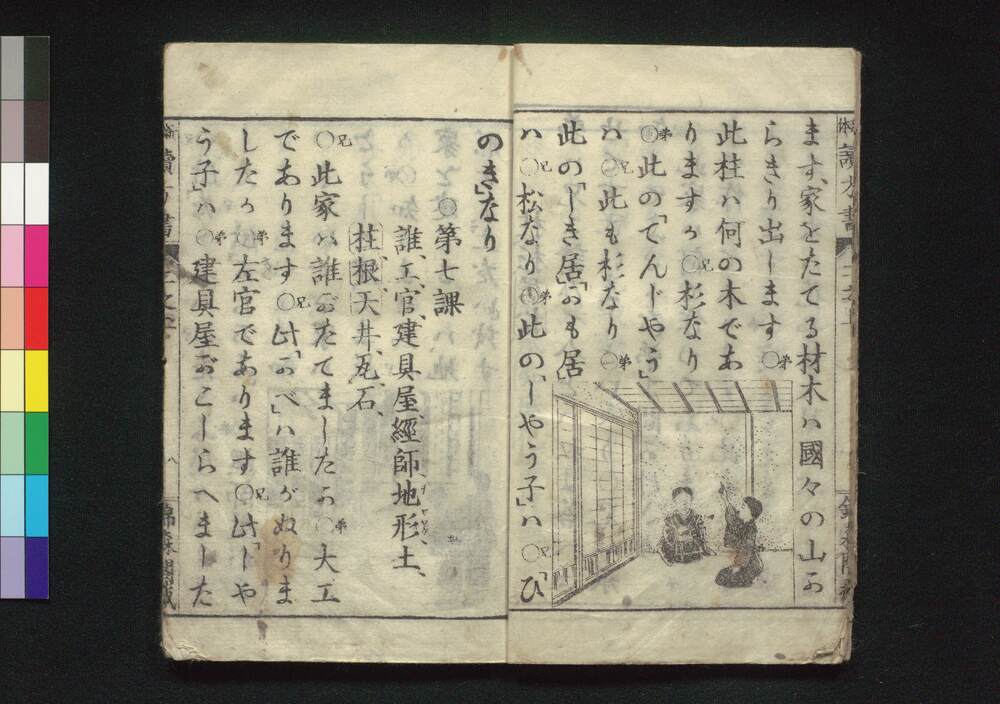 ます、家をたてる材木ハ國々の山か
らきり出します〇弟
此柱ハ何の木であ
りますか〇兄杉なり
〇弟此の「てんじやう」
ハ〇兄此も杉なり〇弟
此の「しき居」「かも居」
ハ〇兄松なり〇弟此の「しやう子」ハ〇兄「ひ
のき」なり
〇第七課
誰、工、官、建具屋、經師、地形、土、
柱根、天井、瓦、石、
〇兄此家ハ誰がたてましたか〇弟大工
であります〇兄此「かべ」ハ誰がぬりま
したか〇弟左官であります〇兄此「しや
う子」ハ〇弟建具屋がこしらへました